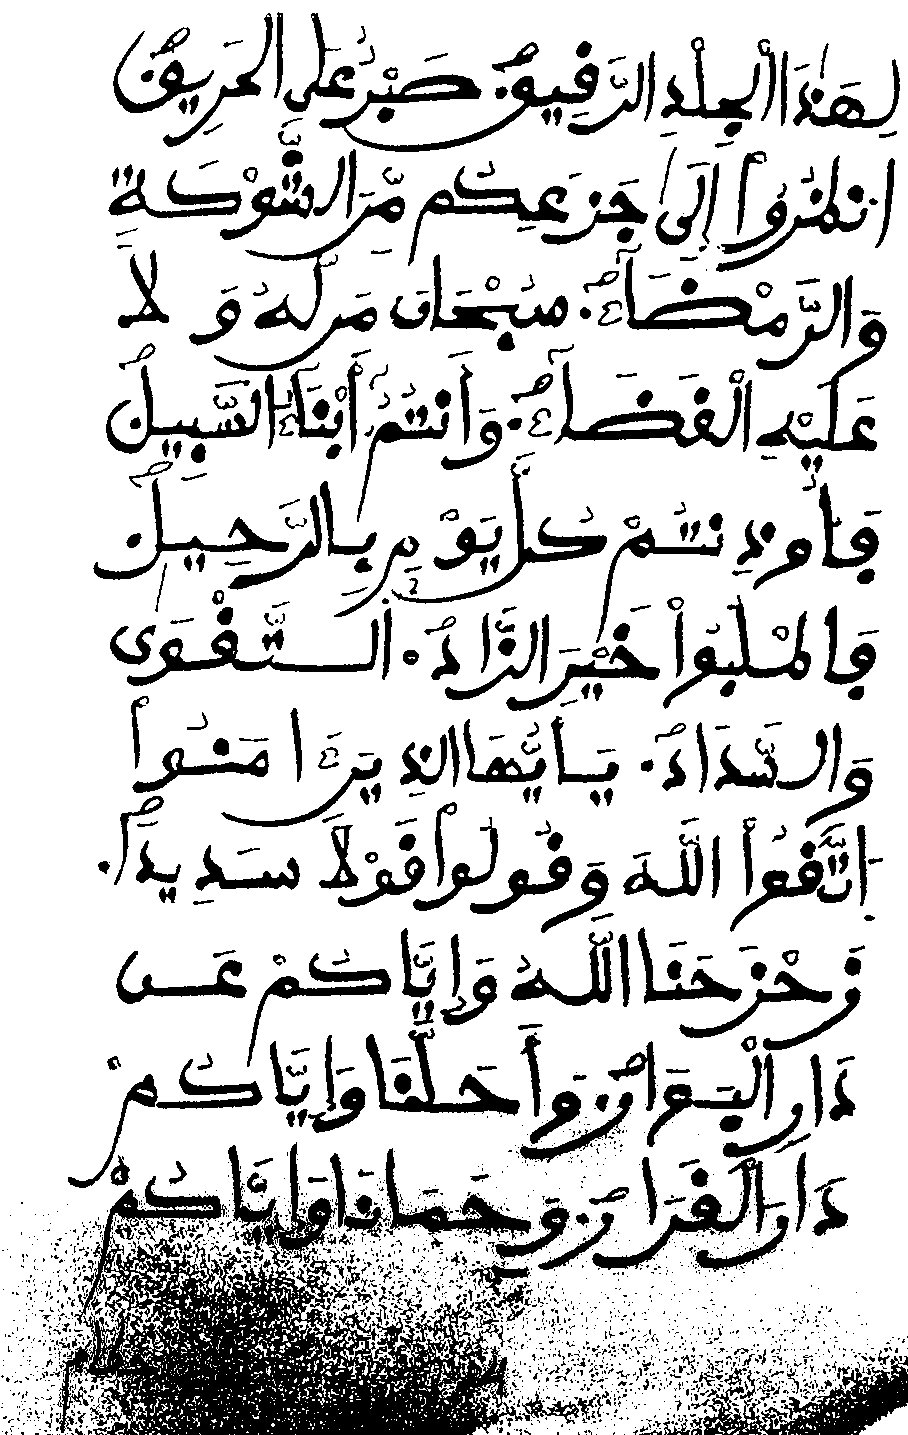 لِهَذَا الْجِلْدِ الرَّقِيقِ صَبْرٌ عَلَى الْحَرِيقِ
انظُرُواْ إِلَى جَزَعِكُم مِّنَ الشَّوْكَةِ
وَالرَّمْضَاءِ سُبْحَانَ مَن لَهُ وَلَا
عَلَيْهِ الْقَضَاءُ وَأَنتُمْ أَبْنَاءُ السَّبِيلِ
فَأُوذِنتُمْ كُلَّ يَوْمٍ بِالرَّحِيلِ
فَاطْلُبُواْ خَيْرَ الزَّادِ التَّقْوَى
وَالسَّدَادِ يَا أَيُّهَا الَّذِينَ ءَامَنُواْ
اتَّقُواْ اللَّهَ وَقُولُواْ قَوْلًا سَدِيدًا
زَحْزَحَنَا اللَّهُ وَإِيَّاكُمْ عَن
دَارِ الْبَوَارِ وَأَحَلَّنَا وَإِيَّاكُمْ
دَارَ الْقَرَارِ وَحَمَانَا وَإِيَّاكُمْ